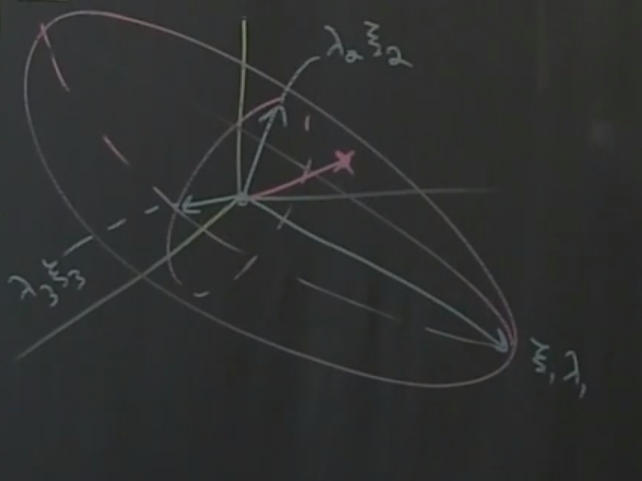 λ₂ξ₂
λ₃ξ₃
ξ₁λ₁